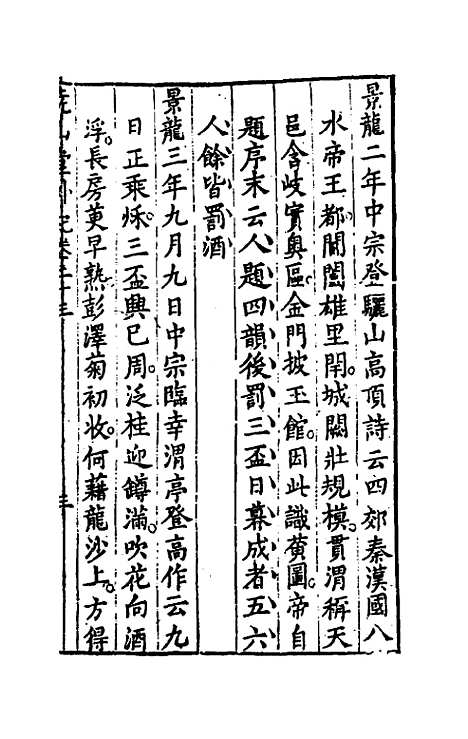 景龍二年中宗登驪山高頂詩云四郊秦漢國八
水帝王都。閶闔雄里閈。城闕壯規模。貫渭稱天
邑含岐實奥區。金門披玉館。因此識黄圖。帝自
題序末云人題四韻後罰三盃日暮成者五六
人餘皆罰酒
景龍三年九月九日中宗臨幸渭亭登高作云九
日正乘秌。三盃興巳周。泛桂迎鐏滿。吹花向酒
浮。長房萸早熟。彭澤菊初收。何藉龍沙上。方得
三